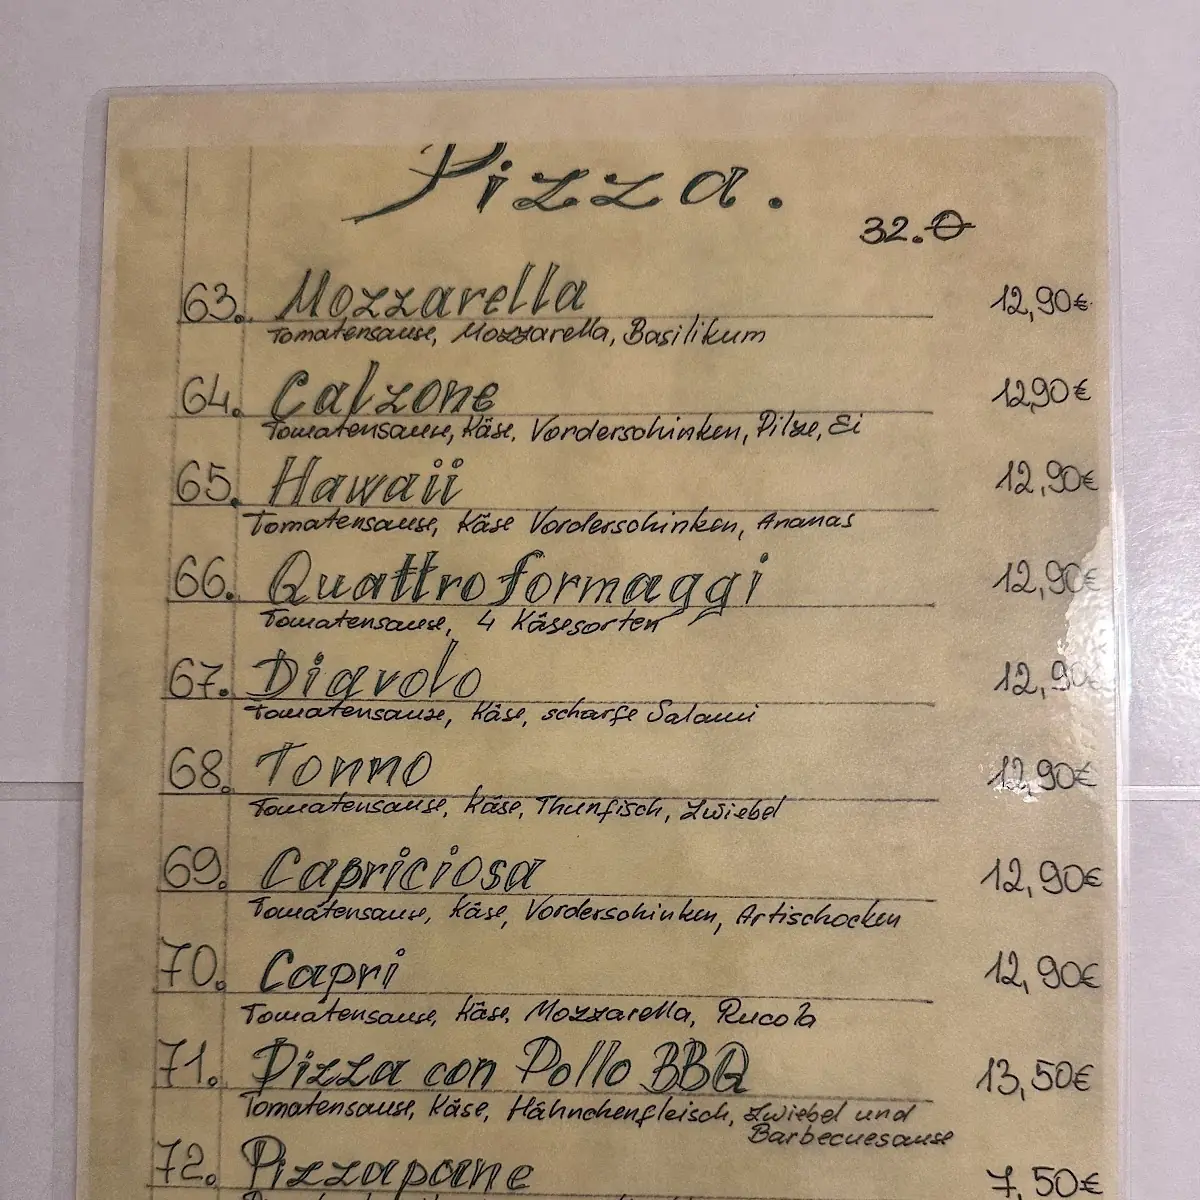 Pizza.
32.Ø
63. Mozzarella 12,90€
Tomatensause, Mozzarella, Basilikum
64. Calzone 12,90€
Tomatensause, Käse, Vorderschinken, Pilze, Ei
65. Hawaii 12,90€
Tomatensause, Käse Vorderschinken, Ananas
66. Quattro formaggi 12,90€
Tomatensause, 4 Käsesorten
67. Diavolo 12,90€
Tomatensause, Käse, scharfe Salami
68. Tonno 12,90€
Tomatensause, Käse, Thunfisch, Zwiebel
69. Capriciosa 12,90€
Tomatensause, Käse, Vorderschinken, Artischocken
70. Capri 12,90€
Tomatensause, Käse, Mozzarella, Rucola
71. Pizza con Pollo BBQ 13,50€
Tomatensause, Käse, Hähnchenfleisch, Zwiebel und
Barbecuesause
72. Pizzapane 7,50€